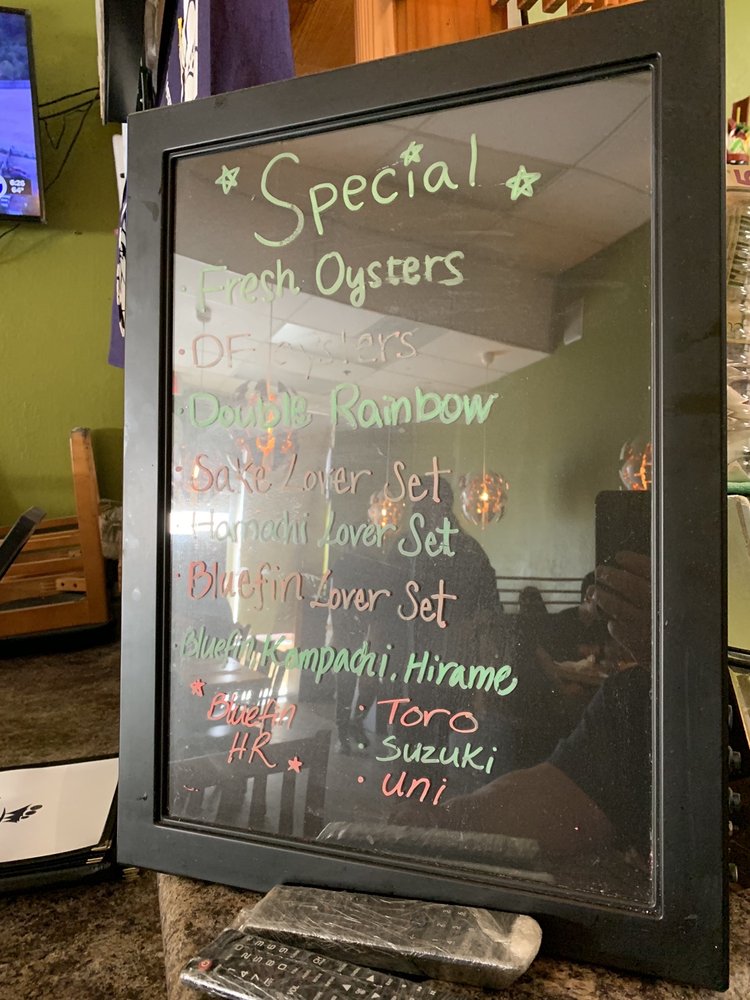 Special
· Fresh Oysters
· DF oysters
· Double Rainbow
· Sake Lover Set
Hamachi Lover Set
· Bluefin Lover Set
· Bluefin, Kampachi, Hirame
Bluefin
HR
· Toro
· Suzuki
· uni
6:26
64°